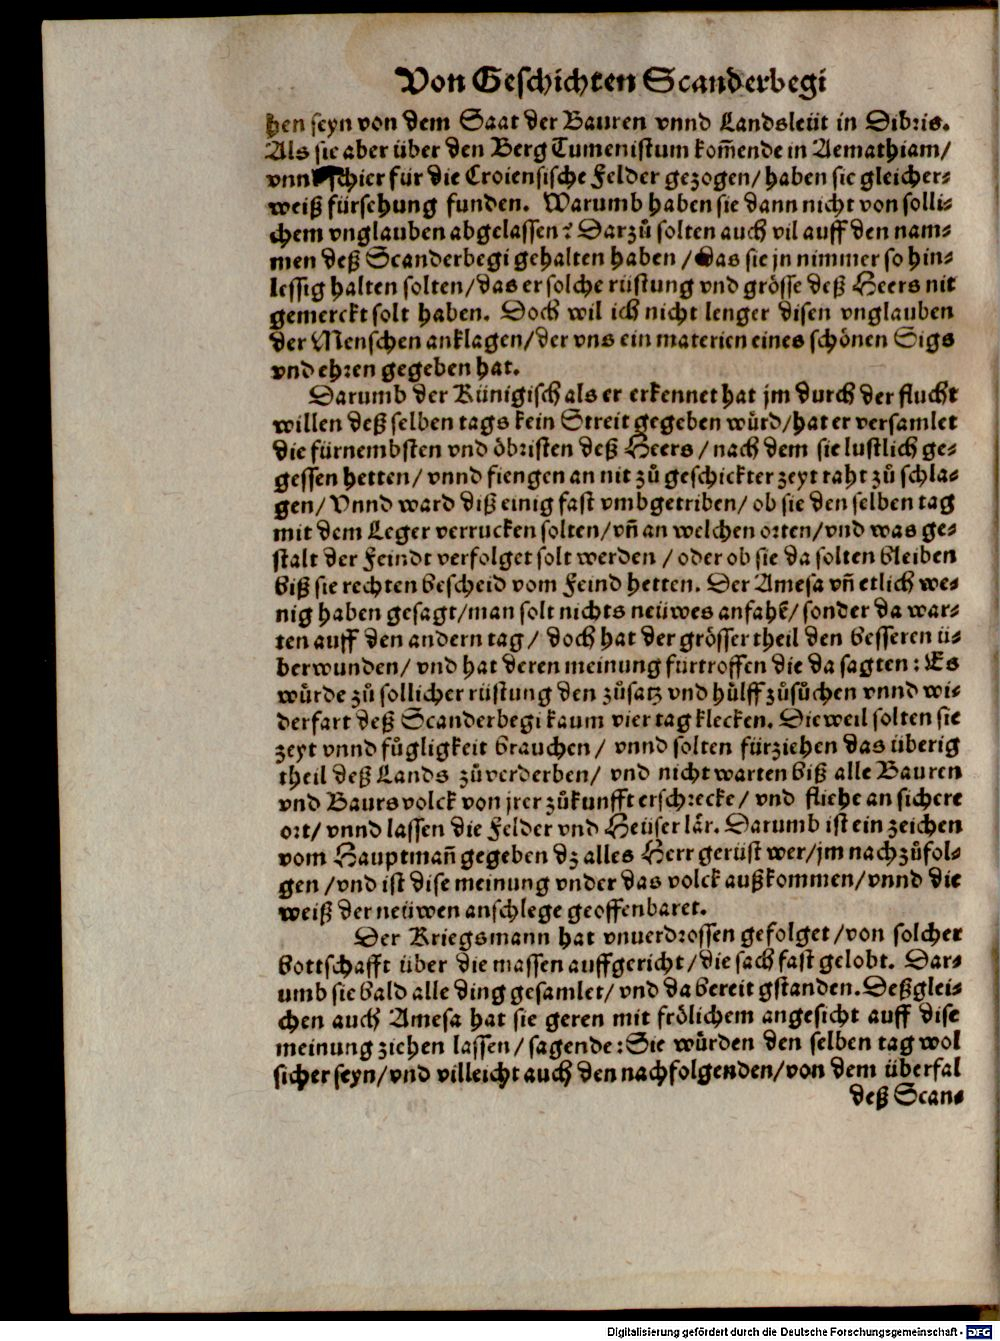 Von Geschichten Scanderbegi
hen seyn von dem Saat der Bauren vnnd Landsleüt in Dibris.
Als sie aber über den Berg Tumenistum kom̃ende in Aemathiam/
vnnd schier für die Croiensische Felder gezogen/ haben sie gleicher-
weiß fürsehung funden. Warumb haben sie dann nicht von solli-
chem vnglauben abgelassen? Darzů solten auch vil auff den nam-
men deß Scanderbegi gehalten haben / das sie jn nimmer so hin-
lessig halten solten/ das er solche rüstung vnd grösse deß Heers nit
gemerckt solt haben. Doch wil ich nicht lenger disen vnglauben
der Menschen anklagen/ der vns ein materien eines schönen Sigs
vnd ehren gegeben hat.
Darumb der Künigisch als er erkennet hat jm durch der flucht
willen deß selben tags kein Streit gegeben würd/ hat er versamlet
die fürnembsten vnd öbristen deß Heers / nach dem sie lustlich ge-
gessen hetten/ vnnd fiengen an nit zů geschickter zeyt raht zů schla-
gen/ Vnnd ward diß einig fast vmbgetriben/ ob sie den selben tag
mit dem Leger verrucken solten/ vñ an welchen orten/ vnd was ge-
stalt der Feindt verfolget solt werden / oder ob sie da solten bleiben
biß sie rechten bescheid vom Feind hetten. Der Amesa vñ etlich we-
nig haben gesagt/ man solt nichts neüwes anfahẽ/ sonder da war-
ten auff den andern tag / doch hat der grösser theil den besseren ü-
berwunden/ vnd hat deren meinung fürtroffen die da sagten: Es
würde zů sollicher rüstung den zůsatz vnd hülff zůsůchen vnnd wi-
derfart deß Scanderbegi kaum vier tag klecken. Dieweil solten sie
zeyt vnnd fůgligkeit brauchen / vnnd solten fürziehen das überig
theil deß Lands zůverderben/ vnd nicht warten biß alle Bauren
vnd Baursvolck von jrer zůkunfft erschrecke/ vnd fliehe an sichere
ort/ vnnd lassen die Felder vnd Heüser lär. Darumb ist ein zeichen
vom Hauptmañ gegeben dz alles Herr gerüst wer/ jm nachzůfol-
gen / vnd ist dise meinung vnder das volck außkommen/ vnnd die
weiß der neüwen anschlege geoffenbaret.
Der Kriegsmann hat vnuerdrossen gefolget / von solcher
bottschafft über die massen auffgericht/ die sach fast gelobt. Dar-
umb sie bald alle ding gesamlet/ vnd da bereit gstanden. Deßglei-
chen auch Amesa hat sie geren mit frölichem angesicht auff dise
meinung ziehen lassen / sagende: Sie würden den selben tag wol
sicher seyn/ vnd villeicht auch den nachfolgenden/ von dem überfal
deß Scan-
Digitalisierung gefördert durch die Deutsche Forschungsgemeinschaft - DFG